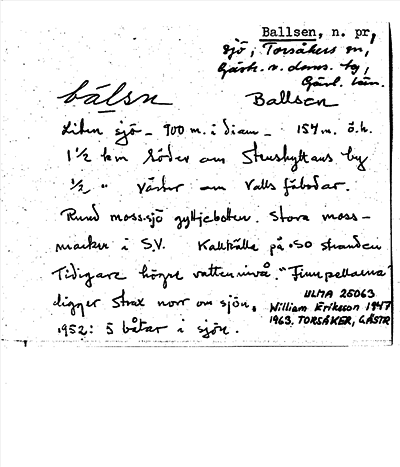 Ballsen, n. pr,
sjö, Torsåkers sn,
Gästr. v. doms. by,
Gävl. län.
bálsn Ballsen
Liten sjö - 900 m. i diam - 154 m. ö.h.
1 1/2 km söder om Stenshyttans by
1/2 " väster om Valls fäbodar.
Rund mossjö gyttjebotten. Stora moss-
marker i S.V. Kallkälla på SO stranden
Tidigare högre vattennivå. "Finnpellarna"
ligger strax norr om sjön.
1952: 5 båtar i sjön.
ULMA 25063
William Eriksson 1947
1963. TORSÅKER, GÄSTR